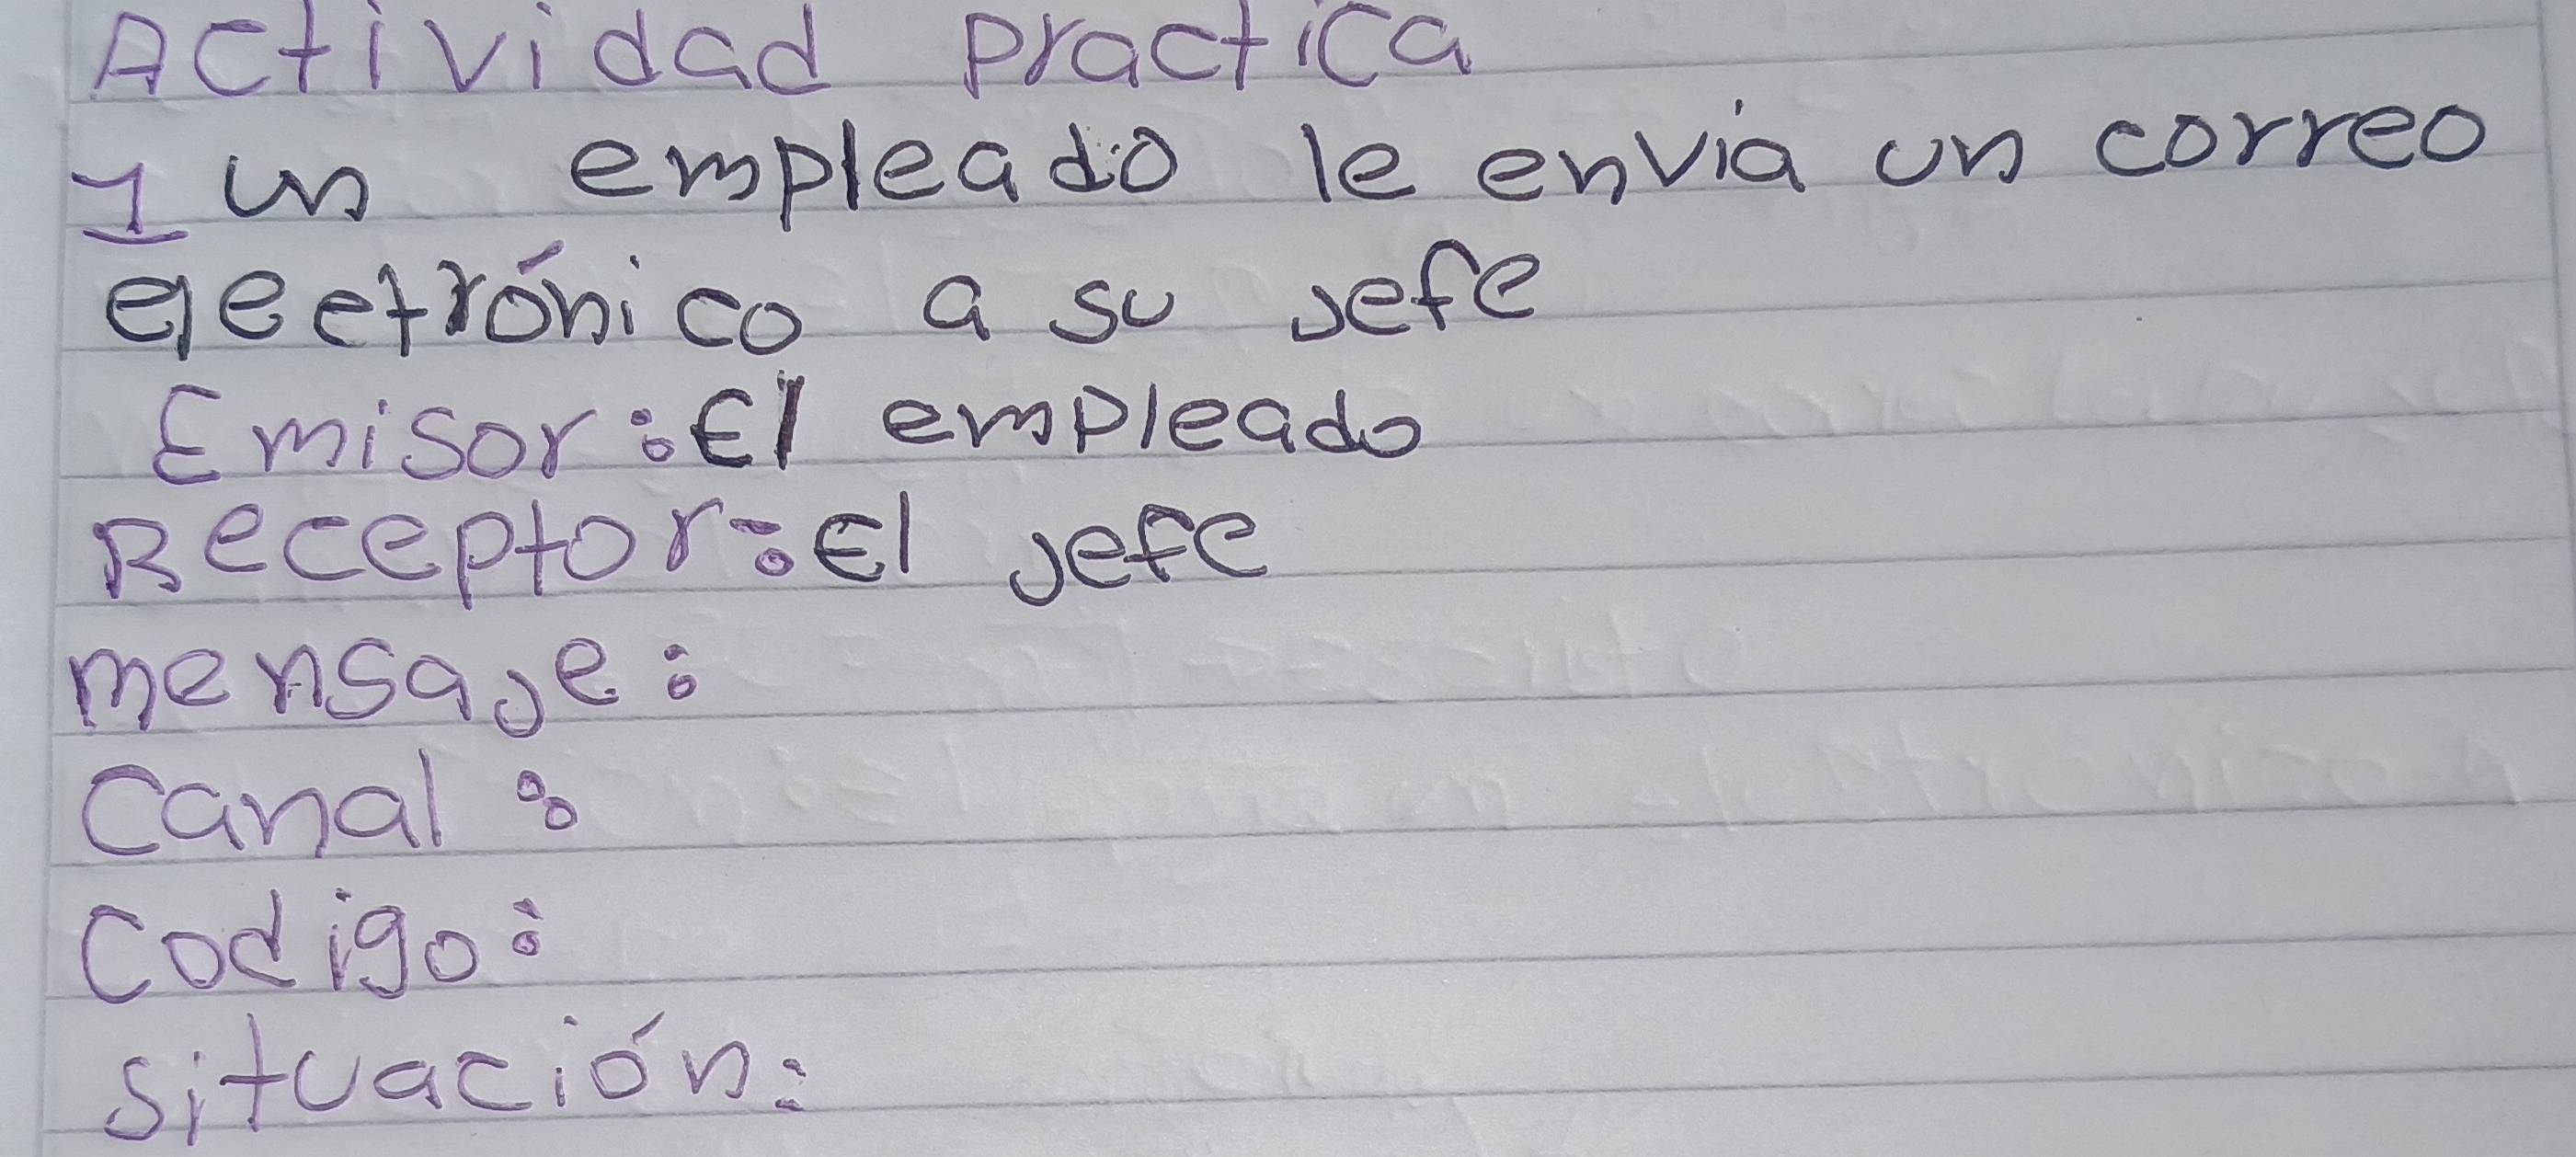 Actividad practica
1 un empleado le envia un correo
electrónico a su jefe
Emisor: El empleado
Receptor: El jefe
mensaje:
Canal:
Codigo:
situación: